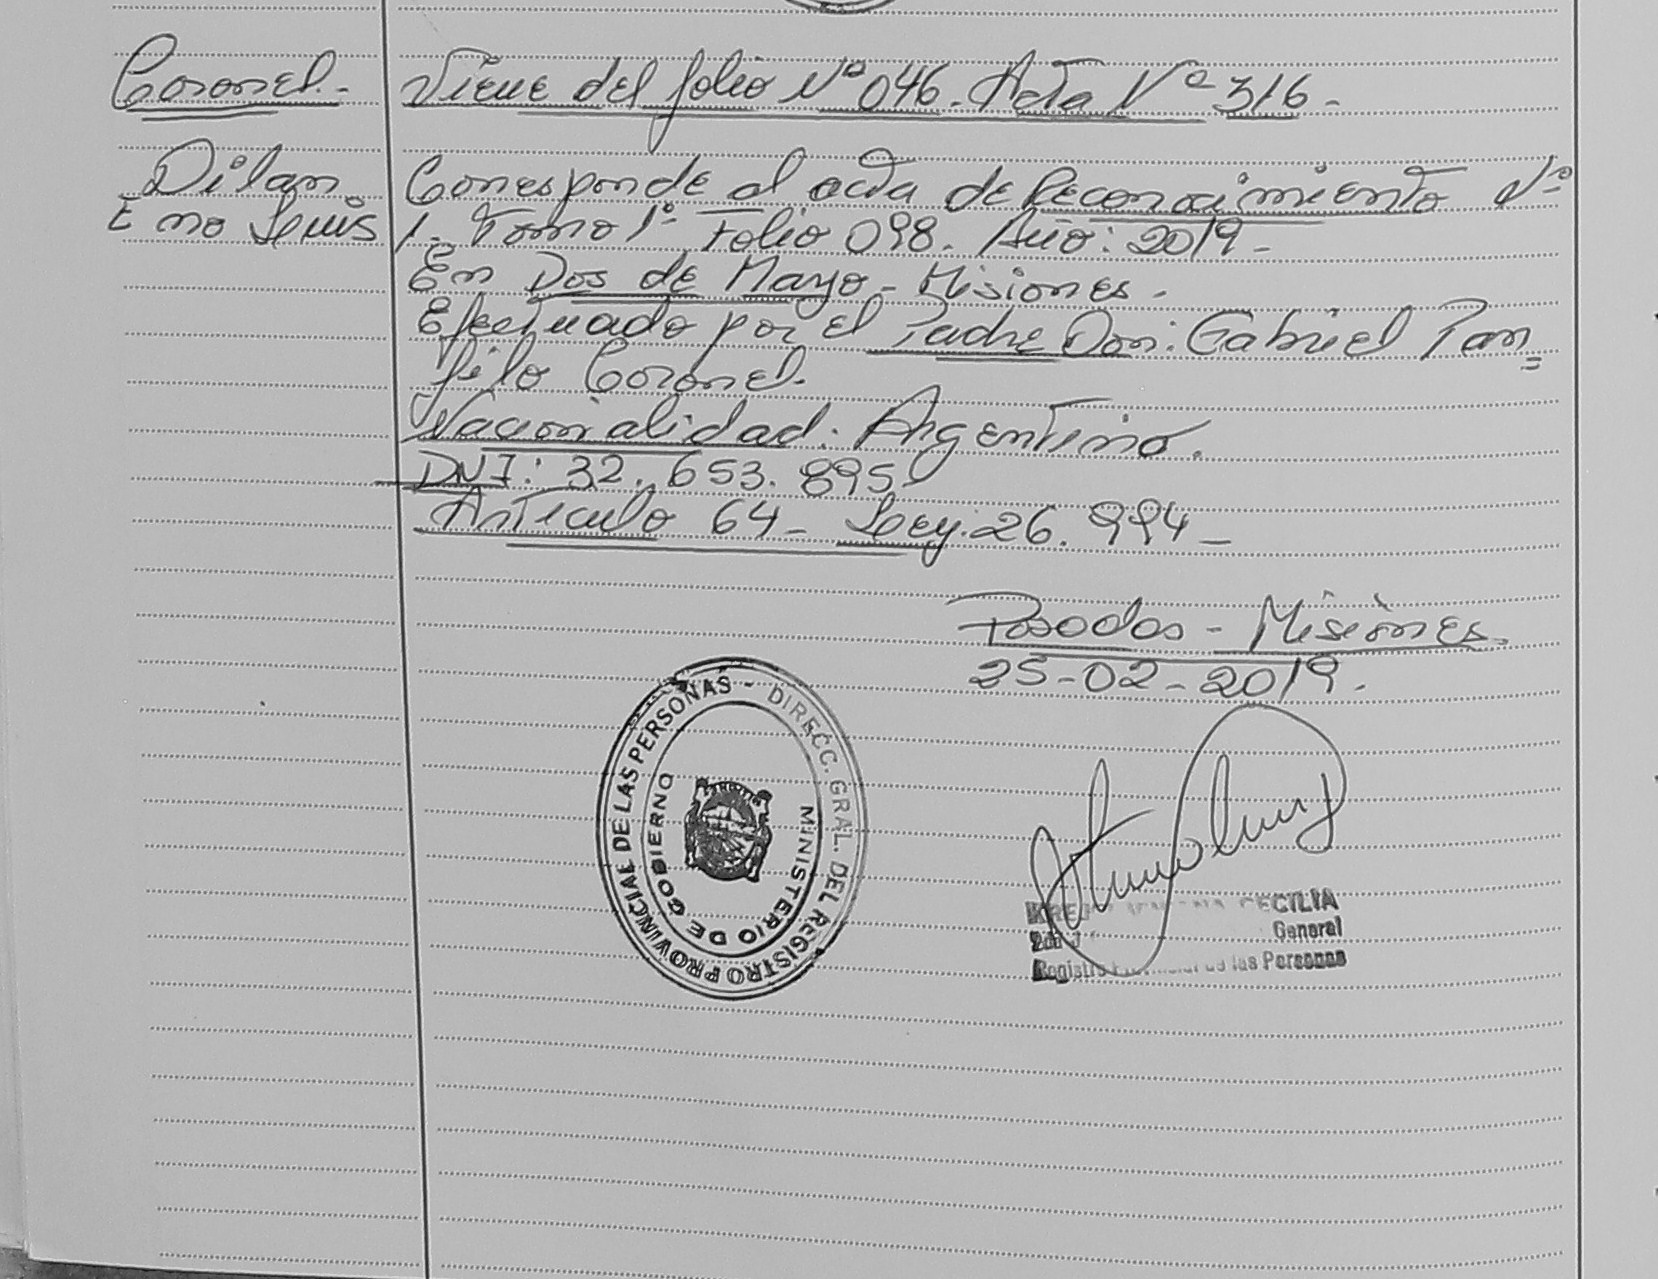 Coronel.-
Viene del folio Nº 046. Acta Nº 316-
Dilan
Corresponde al acta de Reconocimiento Nº
E no Luis
1. Tomo 1º Folio 098. Año: 2019-
En Dos de Mayo - Misiones.
Efectuado por el Padre Don: Gabriel Pan=
filo Coronel.
Nacionalidad: Argentino.
DNI: 32.653.895
Articulo 64- Ley: 26.994-
Posadas - Misiones.
25-02-2019.
DIRECC. GRAL. DEL REGISTRO PROVINCIAL DE LAS PERSONAS -
MINISTERIO DE GOBIERNO
CECILIA
General
Registro Provincial de las Personas